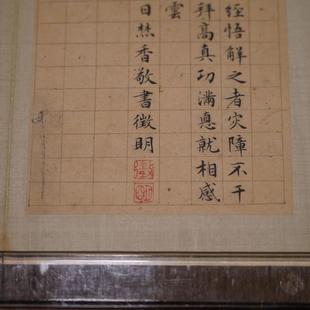 經悟解之者灾障不干
拜高真功滿悳就相感
雲
日焚香敬書徵明